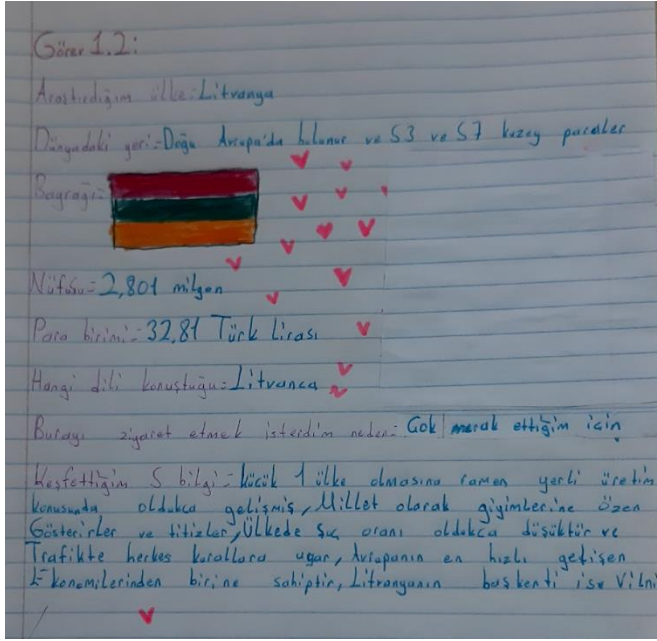 Görev 1.2:
Araştırdığım ülke=Litvanya
Dünyadaki yeri=Doğu Avrupa'da bulunur ve 53 ve 57 kuzey paraleller
Bayrağı=
Nüfusu=2,801 milyon
Para birimi=32,81 Türk Lirası
Hangi dili konuştuğu=Litvanca
Burayı ziyaret etmek isterdim neden=Çok merak ettiğim için
Keşfettiğim 5 bilgi=küçük 1 ülke olmasına ramen yerli üretim
konusunda oldukca gelişmiş, Millet olarak giyimlerine Özen
Gösterirler ve titizler, Ülkede Suç oranı oldukca düşüktür ve
Trafikte herkes kurallara uyar, Avrupanın en hızlı gelişen
Ekonomilerinden birine sahiptir, Litvanyanın başkenti ise Vilni